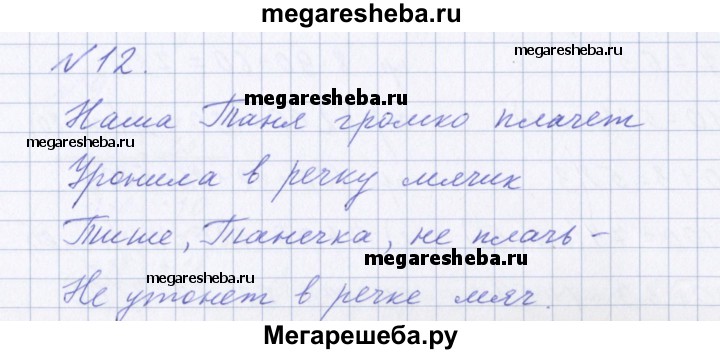 megaresheba.ru
№12.
megaresheba.ru
megaresheba.ru
Наша Таня громко плачет
megaresheba.ru
Уронила в речку мячик
Тише, Танечка, не плачь -
megaresheba.ru
megaresheba.ru
Не утонет в речке мяч.
Мегарешеба.ру